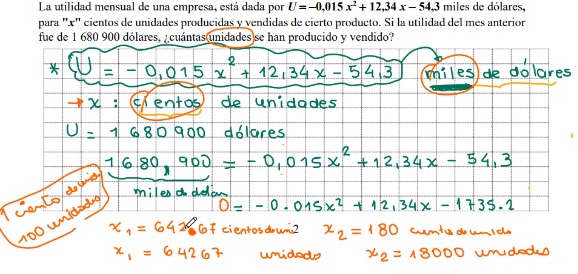 La utilidad mensual de una empresa, está dada por U = −0,015 x² + 12,34 x − 54,3 miles de dólares,
para "x" cientos de unidades producidas y vendidas de cierto producto. Si la utilidad del mes anterior
fue de 1 680 900 dólares, ¿cuántas unidades se han producido y vendido?
* U = − 0,015 x² + 12,34x − 54,3 miles de dólares
→ x : cientos de unidades
U = 1 680 900 dólares
1 680,900 = − 0,015x² + 12,34x − 54,3
miles de dólares
0 = − 0.015x² + 12,34x − 1735.2
1 ciento de unidades
100 unidades
x₁ = 642.67 cientos de uni x₂ = 180 cientos de unids
x₁ = 64267 unidades x₂ = 18000 unidades